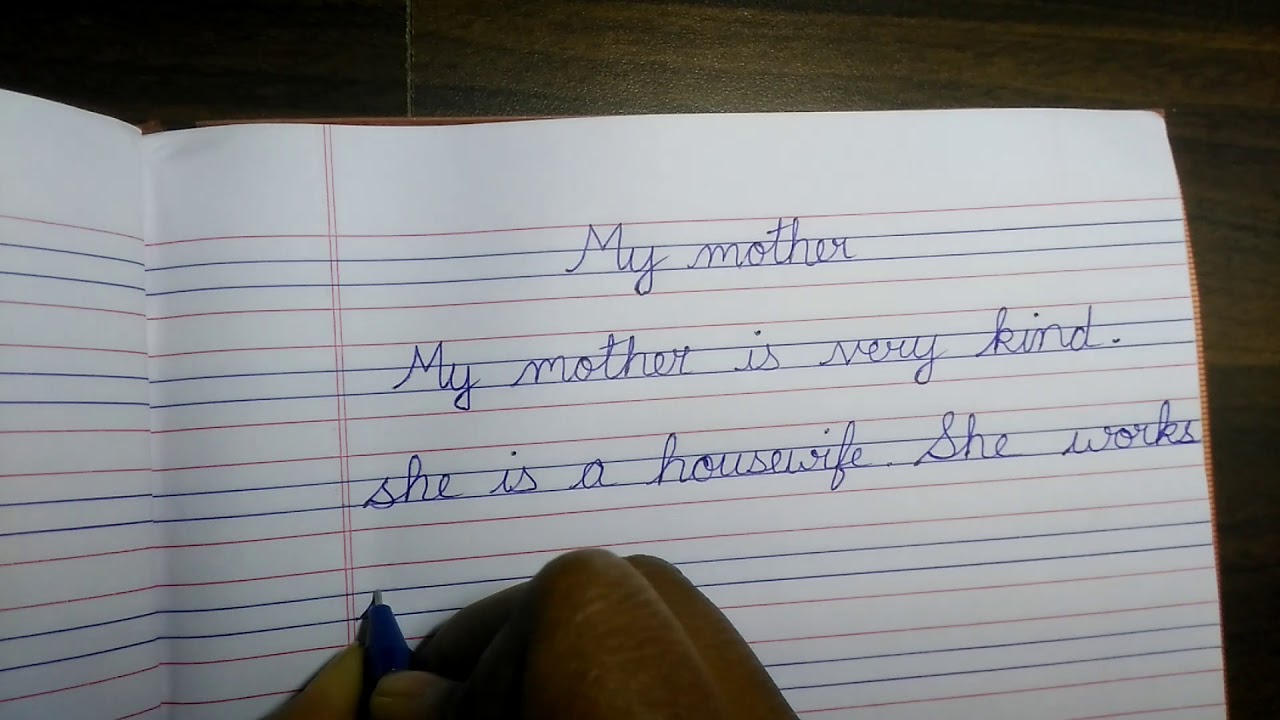 My mother
My mother is very kind.
she is a housewife. She works